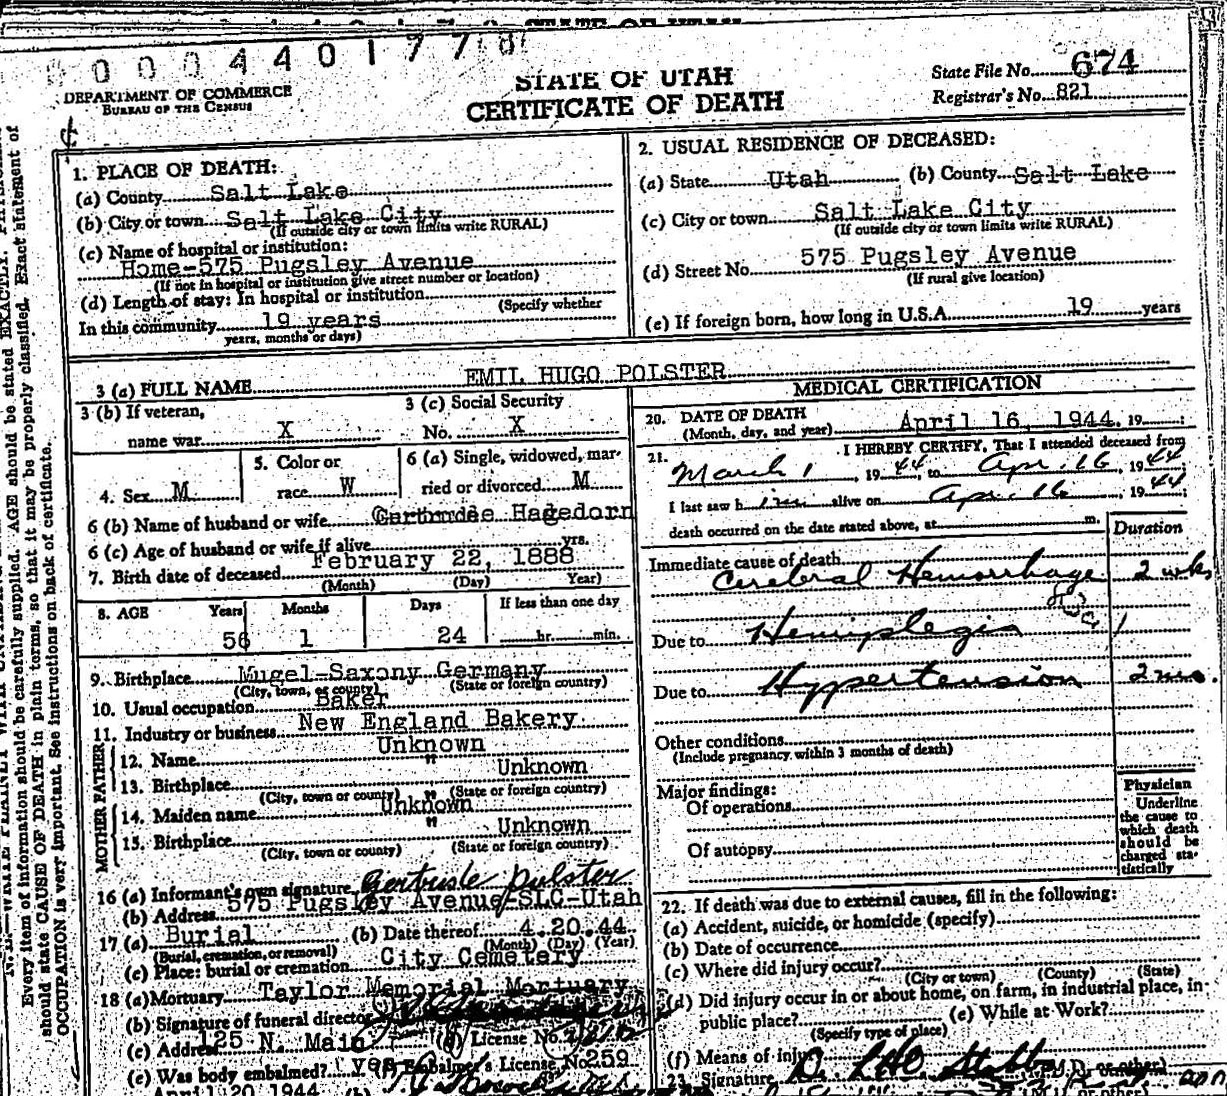 STATE OF UTAH
0 0 0 4 4 0 1 7 7 8
DEPARTMENT OF COMMERCE
BUREAU OF THE CENSUS
STATE OF UTAH
CERTIFICATE OF DEATH
State File No. 674
Registrar's No. 821
1. PLACE OF DEATH:
(a) County Salt Lake
(b) City or town Salt Lake City
(If outside city or town limits write RURAL)
(c) Name of hospital or institution:
Home-575 Pugsley Avenue
(If not in hospital or institution give street number or location)
(d) Length of stay: In hospital or institution
(Specify whether
In this community 19 years
years, months or days)
2. USUAL RESIDENCE OF DECEASED:
(a) State Utah (b) County Salt Lake
(c) City or town Salt Lake City
(If outside city or town limits write RURAL)
(d) Street No. 575 Pugsley Avenue
(If rural give location)
(e) If foreign born, how long in U.S.A. 19 years
3 (a) FULL NAME EMIL HUGO POLSTER
3 (b) If veteran,
name war X
3 (c) Social Security
No. X
4. Sex M
5. Color or
race W
6 (a) Single, widowed, mar-
ried or divorced M
6 (b) Name of husband or wife Gertrudse Hagedorn
6 (c) Age of husband or wife if alive yrs.
7. Birth date of deceased February 22, 1888
(Month) (Day) Year)
8. AGE Years Months Days If less than one day
56 1 24 hr. min.
9. Birthplace Mugel-Saxony Germany
(City, town, or county) (State or foreign country)
10. Usual occupation Baker
11. Industry or business New England Bakery
FATHER
12. Name Unknown
13. Birthplace " Unknown
(City, town or county) (State or foreign country)
MOTHER
14. Maiden name Unknown
15. Birthplace " Unknown
(City, town or county) (State or foreign country)
16 (a) Informant's own signature Gertrude Polster
(b) Address 575 Pugsley Avenue-SLC-Utah
17 (a) Burial (b) Date thereof 4.20.44
(Burial, cremation, or removal) (Month) (Day) (Year)
(c) Place: burial or cremation City Cemetery
18 (a) Mortuary Taylor Memorial Mortuary
(b) Signature of funeral director
(c) Address 125 N. Main (d) License No.
(e) Was body embalmed? yes (f) Embalmer's License No. 259
April 20 1944 (b)
MEDICAL CERTIFICATION
20. DATE OF DEATH
(Month, day, and year) April 16, 1944. 19 ;
21. I HEREBY CERTIFY, That I attended deceased from
March 1, 19 44, to Apr. 16, 19 44
I last saw h im alive on Apr. 16, 19 44;
death occurred on the date stated above, at m.
Duration
Immediate cause of death
Cerebral Hemorrhage 2 wks
Due to Hemiplegia
Due to Hypertension 2 mo.
Other conditions
(Include pregnancy within 3 months of death)
Major findings:
Of operations
Of autopsy
Physician
Underline
the cause to
which death
should be
charged sta-
tistically
22. If death was due to external causes, fill in the following:
(a) Accident, suicide, or homicide (specify)
(b) Date of occurrence
(c) Where did injury occur?
(City or town) (County) (State)
(d) Did injury occur in or about home, on farm, in industrial place, in
public place? (e) While at Work?
(Specify type of place)
(f) Means of injury
23. Signature (M.D. or other)
Every item of information should be carefully supplied. AGE should be stated EXACTLY.
should state CAUSE OF DEATH in plain terms, so that it may be properly classified. Exact statement of
OCCUPATION is very important. See instructions on back of certificate.